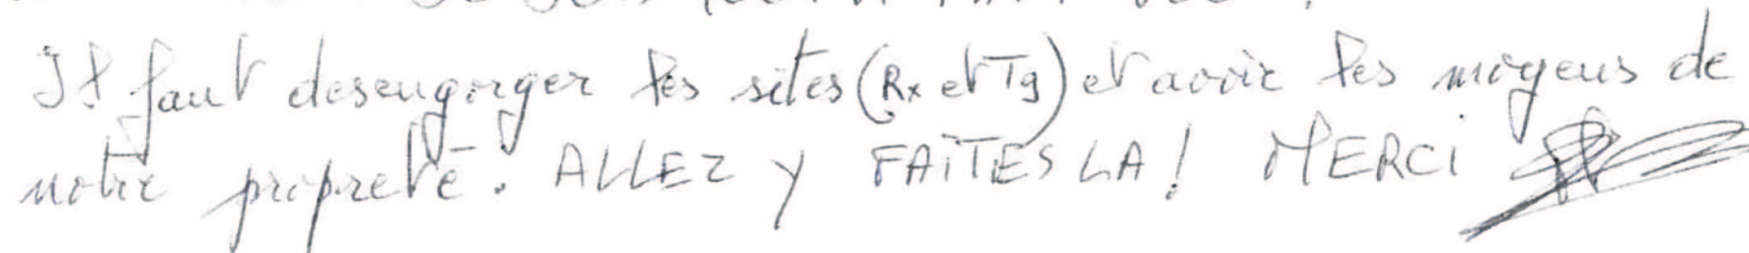 Il faut desengorger les sites (Rx et Tg) et avoir les moyens de
notre propreté. ALLEZ Y FAITES LA ! MERCI